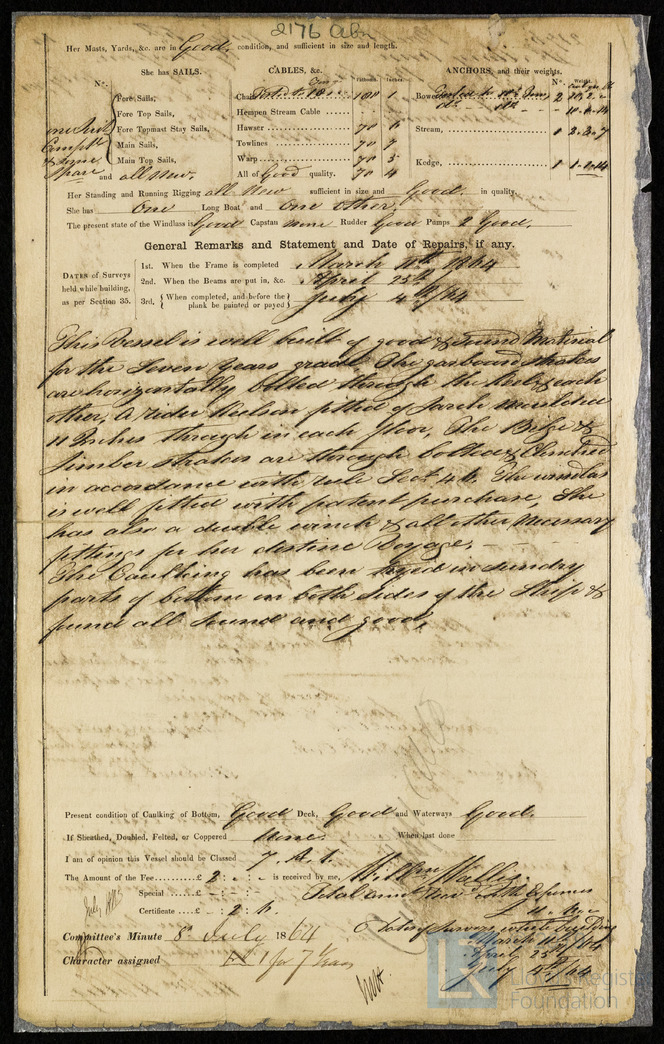 2176 Abn
Her Masts, Yards, &c. are in Good condition, and sufficient in size and length.
She has SAILS. CABLES, &c. Fathoms. Inches. ANCHORS, and their weights. Nº. Weight.
Nº.
Fore Sails, Chain 100 1 Bower 2
Fore Top Sails, Hempen Stream Cable
Fore Topmast Stay Sails, Hawser 70 6 Stream, 1 2.2.7
one Suit Complete & some Spare
Main Sails, Towlines 70
Main Top Sails, Warp 70 5 Kedge,
and all New. All of Good quality. 70 4
Her Standing and Running Rigging all New sufficient in size and Good. in quality.
She has One Long Boat and One other
The present state of the Windlass is Good Capstan None Rudder Good Pumps 2 Good.
General Remarks and Statement and Date of Repairs, if any.
DATES of Surveys held while building, as per Section 35.
1st. When the Frame is completed March 11th 1864
2nd. When the Beams are put in, &c. April 25th
3rd, { When completed, and before the plank be painted or payed } July 4th/64
This Vessel is well built of good & sound Material
for the Seven Years grade. The garboard strakes
are horizontally bolted through the Keel & each
other, A rider Keelson fitted of Larch
11 Inches through in each floor, The Bilge &
Timber strakes are through bolted & Clenched
in accordance with rule Sect. 46. The windlas
is well fitted with patent purchase, She
has also a double winch & all other Necessary
fittings for her destine Voyage.
The Caulking has been tryed in sundry
parts of bottom in both sides of the Ship &
found all sound and good,
Present condition of Caulking of Bottom, Good Deck, Good and Waterways Good.
If Sheathed, Doubled, Felted, or Coppered None. When last done
I am of opinion this Vessel should be Classed 7. A. 1.
The Amount of the Fee £ 2 : - : - is received by me,
Special £ - : - : -
Certificate £ - : 2 : 6.
Committee's Minute 8 July 1864
Character assigned A 1 for 7 Years
Dates of Surveys while building
March 11th/64
April 25th
July 4th/64
Lloyd's Register
Foundation